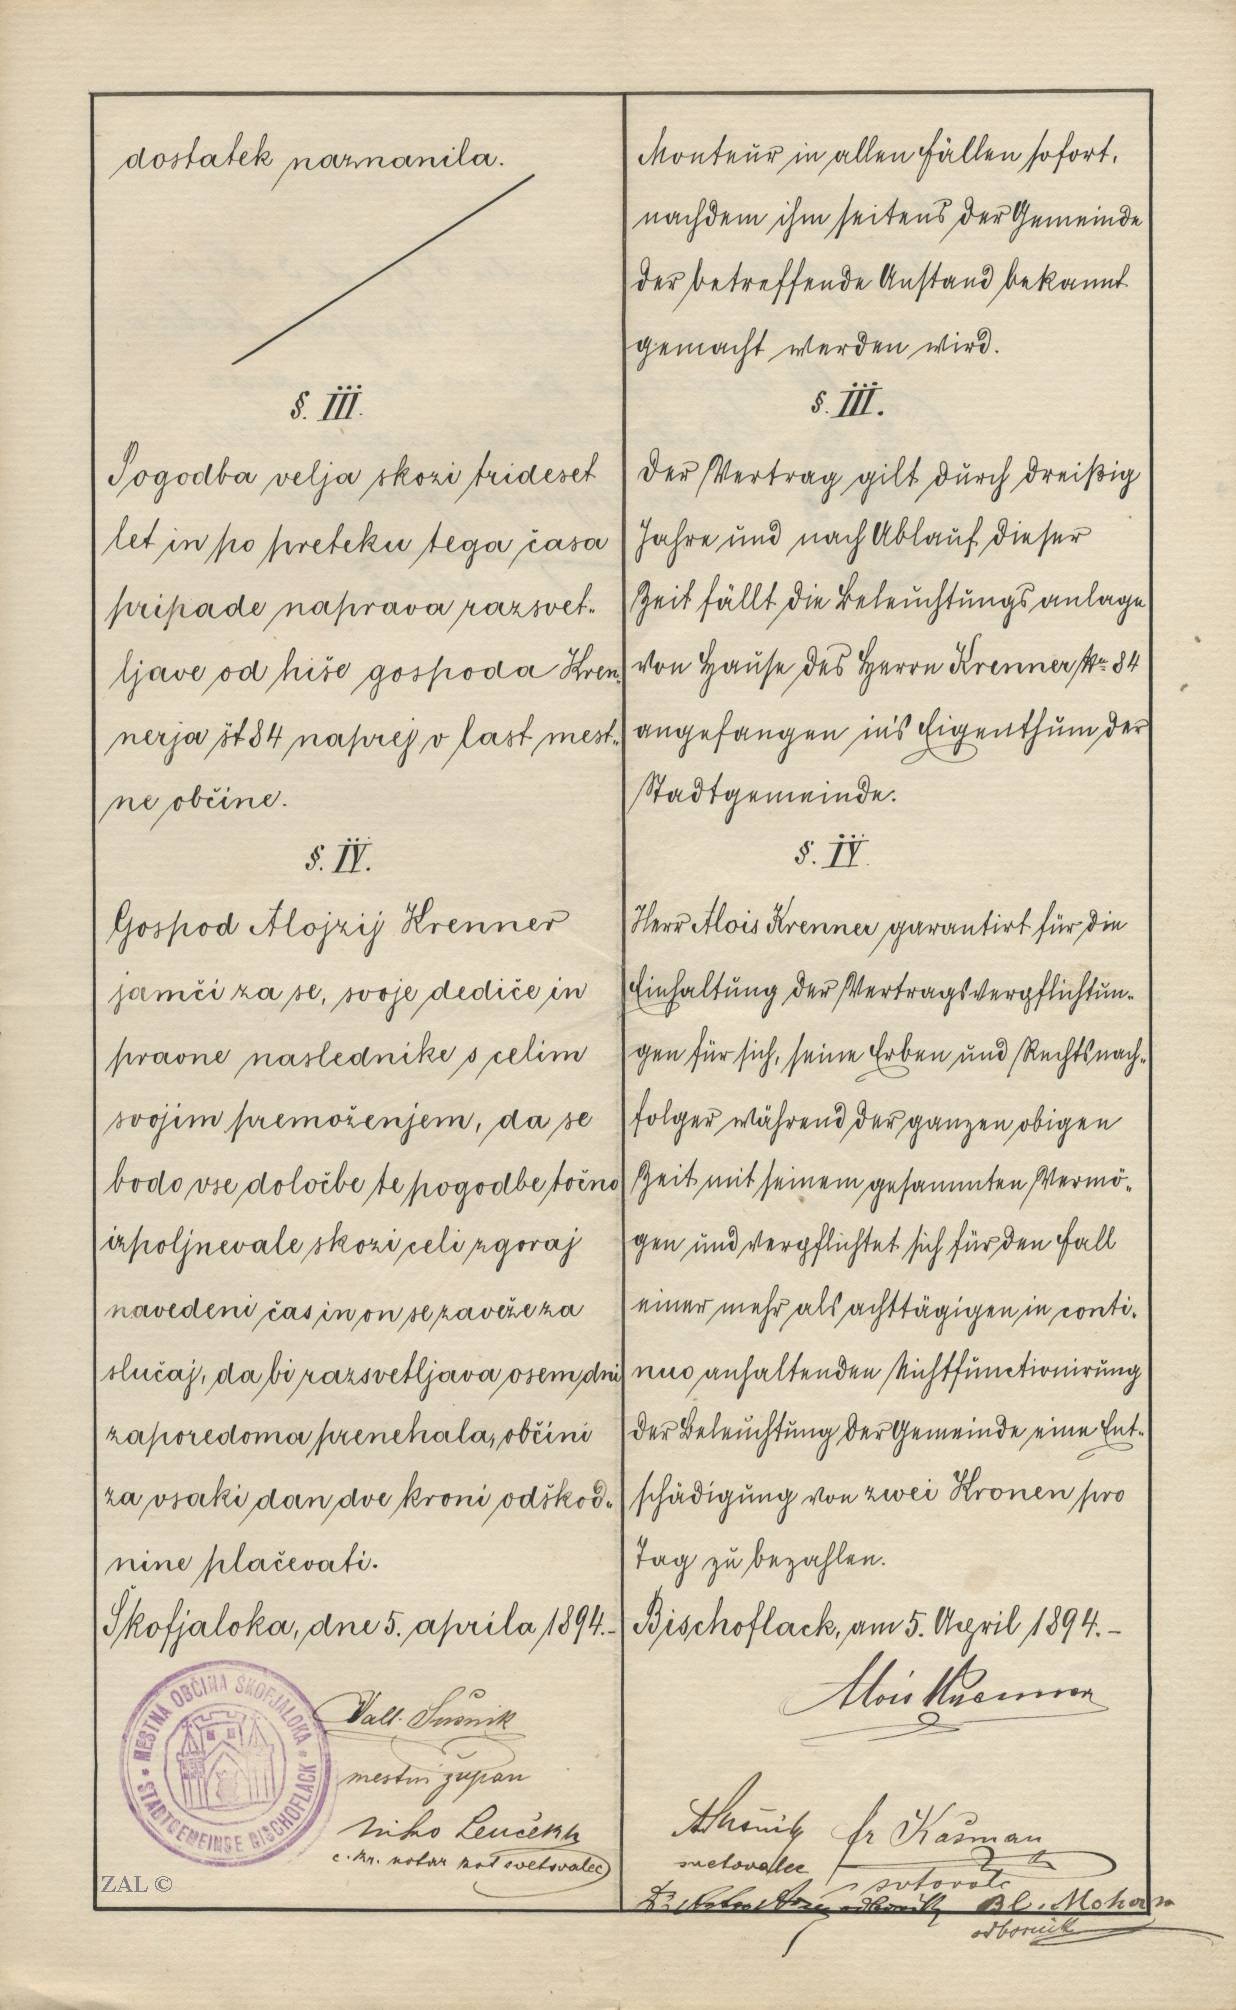 dostatek naznanila.
§. III.
Pogodba velja skozi trideset
let in po preteku tega časa
pripade naprava razsvet-
ljave od hiše gospoda Kren-
nerja št 84 naprej v last mest-
ne občine.
§. IV.
Gospod Alojzij Krenner
jamči za se, svoje dediče in
pravne naslednike s celim
svojim premoženjem, da se
bodo vse določbe te pogodbe točno
izpoljnevale skozi celi zgoraj
navedeni čas in on se zaveže za
slučaj, da bi razsvetljava osem dni
zaporedoma prenehala, občini
za vsaki dan dve kroni odškod-
nine plačevati.
Škofjaloka, dne 5. aprila 1894.-
MESTNA OBČINA ŠKOFJALOKA
STADTGEMEINDE BISCHOFLACK
Val. Sušnik
mestni župan
Niko Lenček
c. kr. notar kot svetovalec
ZAL ©
Monteur in allen Fällen sofort,
nachdem ihm seitens der Gemeinde
der betreffende Anstand bekannt
gemacht werden wird.
§. III.
Der Vertrag gilt durch dreißig
Jahre und nach Ablauf dieser
Zeit fällt die Beleuchtungsanlage
von Hause des Herrn Krenner Nr. 84
angefangen in's Eigenthum der
Stadtgemeinde.
§. IV.
Herr Alois Krenner garantirt für die
Einhaltung der Vertragsverpflichtun-
gen für sich, seine Erben und Rechtsnach-
folger während der ganzen obigen
Zeit mit seinem gesammten Vermö-
gen und verpflichtet sich für den Fall
einer mehr als achttägigen in conti-
nuo anhaltenden Nichtfunctionirung
der Beleuchtung der Gemeinde eine Ent-
schädigung von zwei Kronen pro
Tag zu bezahlen.
Bischoflack, am 5. April 1894.-
Alois Krenner
A. Sušnik
svetovalec
fr Kašman
svtovalc
odbornik
Bl. Mohor
odbornik